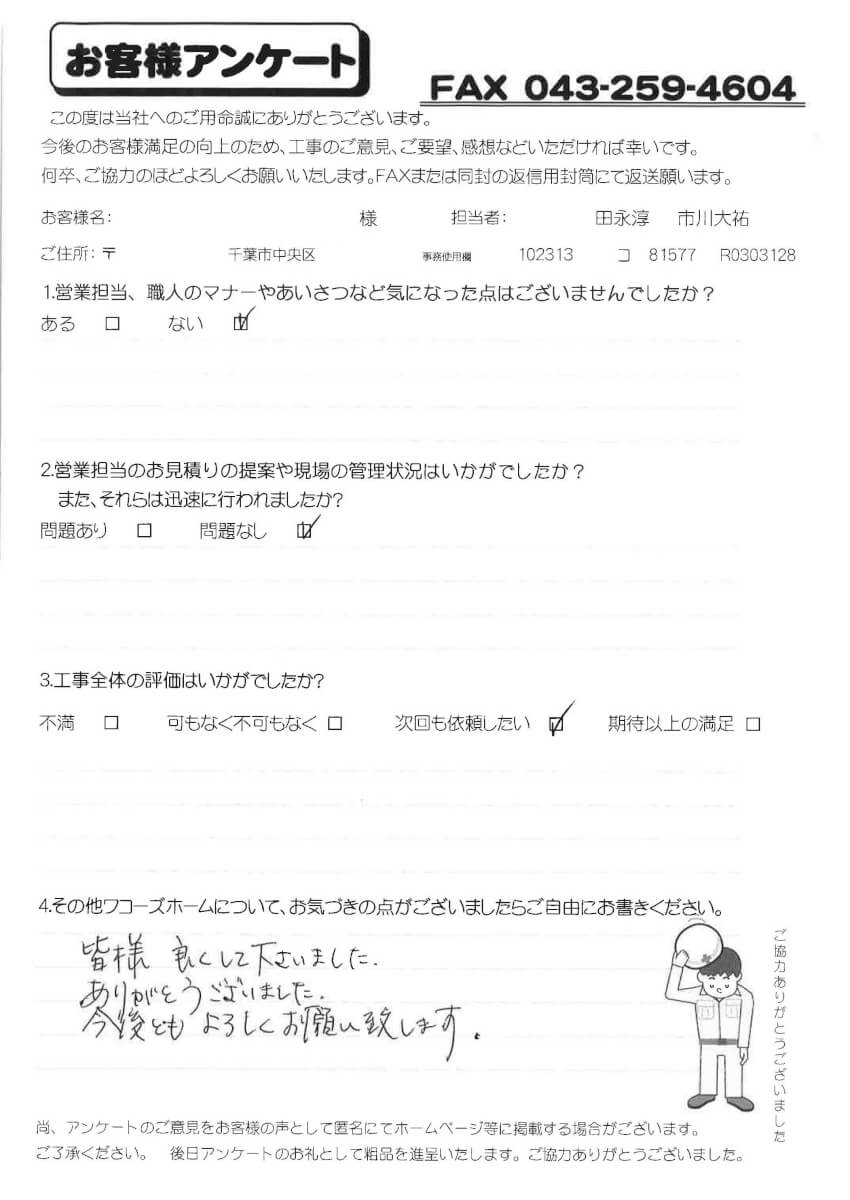 お客様アンケート
FAX 043-259-4604
この度は当社へのご用命誠にありがとうございます。
今後のお客様満足の向上のため、工事のご意見、ご要望、感想などいただければ幸いです。
何卒、ご協力のほどよろしくお願いいたします。FAXまたは同封の返信用封筒にて返送願います。
お客様名: 様 担当者: 田永淳 市川大祐
ご住所:〒 千葉市中央区 事務使用欄 102313 コ 81577 R0303128
1.営業担当、職人のマナーやあいさつなど気になった点はございませんでしたか?
ある □ ない ☑
2.営業担当のお見積りの提案や現場の管理状況はいかがでしたか?
また、それらは迅速に行われましたか?
問題あり □ 問題なし ☑
3.工事全体の評価はいかがでしたか?
不満 □ 可もなく不可もなく □ 次回も依頼したい ☑ 期待以上の満足 □
4.その他ワコーズホームについて、お気づきの点がございましたらご自由にお書きください。
皆様 良くして下さいました.
ありがとうございました.
今後ともよろしくお願い致します.
ご協力ありがとうございました
尚、アンケートのご意見をお客様の声として匿名にてホームページ等に掲載する場合がございます。
ご了承ください。 後日アンケートのお礼として粗品を進呈いたします。ご協力ありがとうございました。